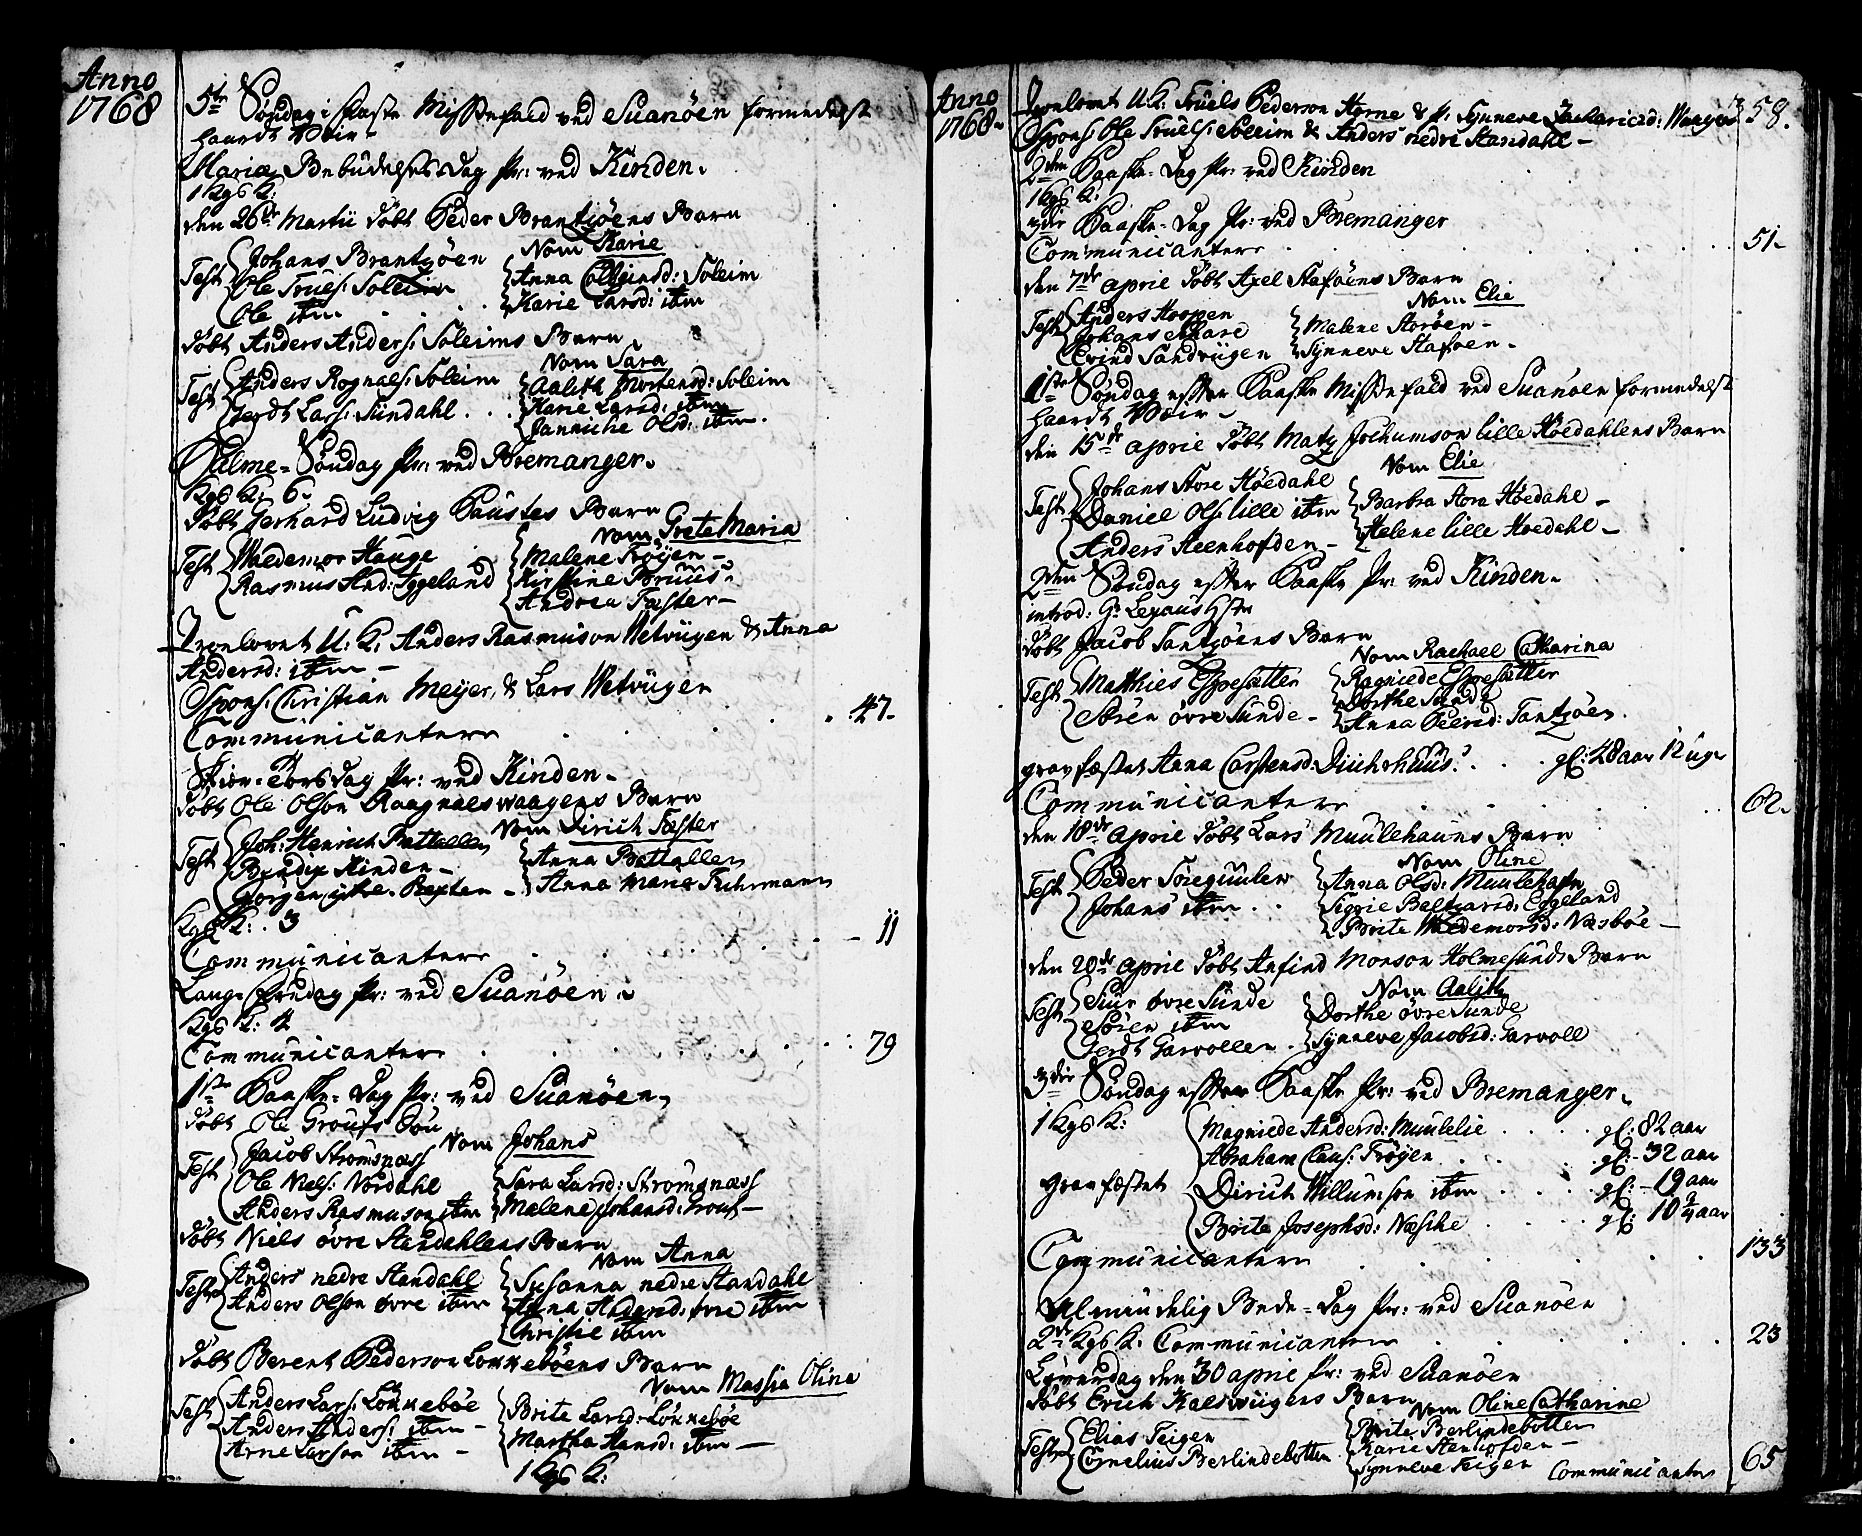 Anno
1768
5te Søndag i Faste Missefald ved Suanöen formedelst
haardt Veir
Mariæ Bebudelses Dag Pr: ved Kinden.
1 Kgs K:
den 26de Martii döbt Peder Brantzöens Barn
Nom Karie
Test Johans Brantzöen
Ole Truels: Soleim
Ole ibm
Anna Colbeinsd: Soleim
Karie Larsd: ibm
döbt Anders Anders: Soleims Barn
Nom Sara
Test Anders Rognaels: Soleim
Gerdt Lars: Sündahl
Aalith Mortensd: Soleim
Karie Larsd: ibm
Janniche Olsd: ibm.
Palme-Søndag Pr: ved Bremanger.
Kgs K: 6.
döbt Gerhard Ludvig Paustes Barn
Nom Grete Maria
Test Waldemor Hauge
Rasmus And: Iggeland
Malene Frøyen
Kirstine Bruus
Andrea Faster
Trolovet U: K: Anders Rasmuson Wetvügen & Anna
Andersd: ibm
Spons: Christian Meyer, & Lars Wetvügen
Communicantere 47.
Skier-Torsdag Pr: ved Kinden.
döbt Ole Olson Raagnaeswaagens Barn
Nom Dirich Faster
Test Joh: Henrich Battallen
Bendix Kinden
Jørgen ytre Rexten
Anna Battallen
Anna Maria Fuhrmann
Kgs K: 3
Communicantere 11
Lange Fredag Pr: ved Suanöen.
Kgs K: 4
Communicantere 79
1ste Paaske-Dag Pr: ved Suanöen.
döbt Ole Groufs Sön
Nom Johans
Test Jacob Strömsnæss
Ole Niels: Nordahl
Anders Rasmuson ibm
Sara Larsd: Strömsnæss
Malene Johansd: Grouf
döbt Niels övre Standahlens Barn
Nom Anna
Test Anders nedre Standahl
Anders Olson övre ibm
Susanna nedre Standahl
Anna övre ibm
Christie ibm
döbt Berent Pederson Lonneböens Barn
Nom Massia Olina
Test Anders Lars: Lönneböe
Anders Anders: ibm
Arne Larson ibm
Brite Larsd: Lönneböe
Martha Hansd: ibm
1 Kgs K:
Anno
1768.
58.
Trolovet U: K: Truels Pederson Horne & P: Synneve Zachariæd: Waagen
Spons: Ole Truels: Soleim & Anders nedre Standahl
2den Paaske-Dag Pr: ved Kinden
1 Kgs K:
3die Paaske-Dag Pr: ved Bremanger
Communicantere 51.
den 7de Aprie döbt Axel Staföens Barn
Nom Elie
Test Anders Hoopen
Johans
Eivind Sandvügen
Malene Storöen
Synneve Stafoen
1ste Søndag efter Paaske Missefald ved Suanöen formedelst
haardt Veir
den 15de Aprie döbt Matz Jochumson lille Höedahlens Barn
Nom Elie
Test Johans Store Höedahl
Daniel Ols: lille ibm
Anders Steenhofden
Barbra Store Höedahl
Helene lille Hoedahl
2den Søndag efter Paaske Pr: ved Kinden.
introd: Gs: Lexaus Hstr
döbt Jacob Tantzöens Barn
Nom Rachael Catharina
Test Matthies Espesætter
Sören övre Sunde
Ragniede Espesætter
Dorthe Sunde
Anna Peersd: Tantzöen
gravfæstet Anna Carstensd: Diuhrhuus gl: 28 aar 12 uger
Communicantere 62.
den 18de Aprie döbt Lars Muulehauns Barn
Nom Oline
Test Peder Söreguulen
Johans ibm
Anna Olsd: Muulehafn
Sigrie Baltzarsd: Eggeland
Brite Waldemorsd: Næsböe
den 20de Aprie döbt Anfind Monson Holmesunds Barn
Nom Aalith
Test Siur övre Sunde
Sören ibm
Gerdt Garvollen
Dorthe övre Sunde
Synneve Jacobsd: Garvoll
3die Søndag efter Paaske Pr: ved Bremanger.
1 Kgs K:
gravfæstet
Magniede Andersd: Muulelie gl: 82 aar
Abraham Claus: Frøyen gl: 32 aar
Dirich Willumson ibm gl: 19 aar
Brite Josephsd: Næsche gl: 10 3/4 aar
Communicantere 133
Almindelig Bede-Dag Pr: ved Suanöen
2de Kgs K: Communicantere 23
Løverdag den 30 Aprie Pr: ved Suanöen
döbt Erich Kaesvügens Barn
Nom Oline Catharine
Test Elias Teigen
Cornelius Berlindebotten
Brite Berlindebotten
Karie Stenhofden
Synneve Teigen
Communicantere 65